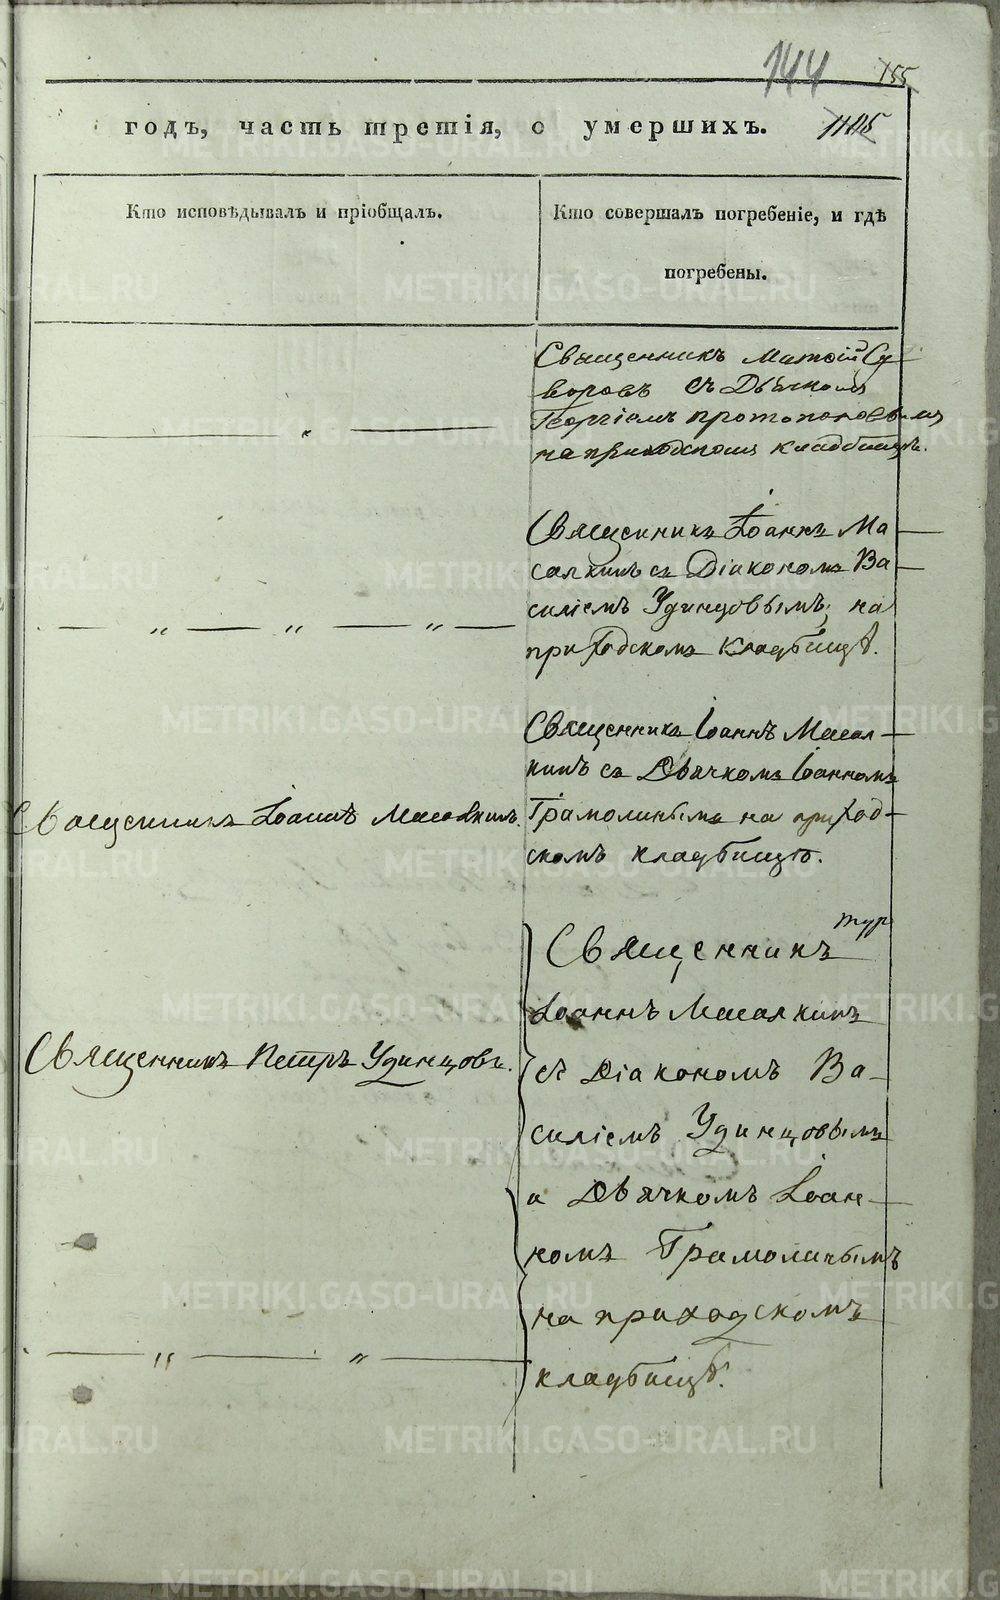 144 155
годъ, часть третія, о умершихъ. 1145
Кто исповѣдывалъ и пріобщалъ.
Кто совершалъ погребеніе, и гдѣ
погребены.
Священникъ Матѳій Су
воровъ съ Дьячкомъ
Георгіемъ Протопоповымъ
на приходскомъ кладбищѣ.
— „ —
Священникъ Іоаннъ Ма-
салкинъ съ Діакономъ Ва-
силіемъ Удинцовымъ, на
приходскомъ кладбищѣ.
— „ — „ — „ —
Священникъ Іоаннъ Масал-
кинъ съ Дьячкомъ Іоанномъ
Грамолинымъ на приход-
скомъ кладбищѣ.
Священникъ Іоаннъ Масалкинъ.
Священникъ
Іоаннъ Масалкинъ
съ Діакономъ Ва-
силіемъ Удинцовымъ
и Дьячкомъ Іоан-
номъ Грамолинымъ
на приходскомъ
кладбищѣ.
Священникъ Петръ Удинцовъ.
— „ — „ —
METRIKI.GASO-URAL.RU